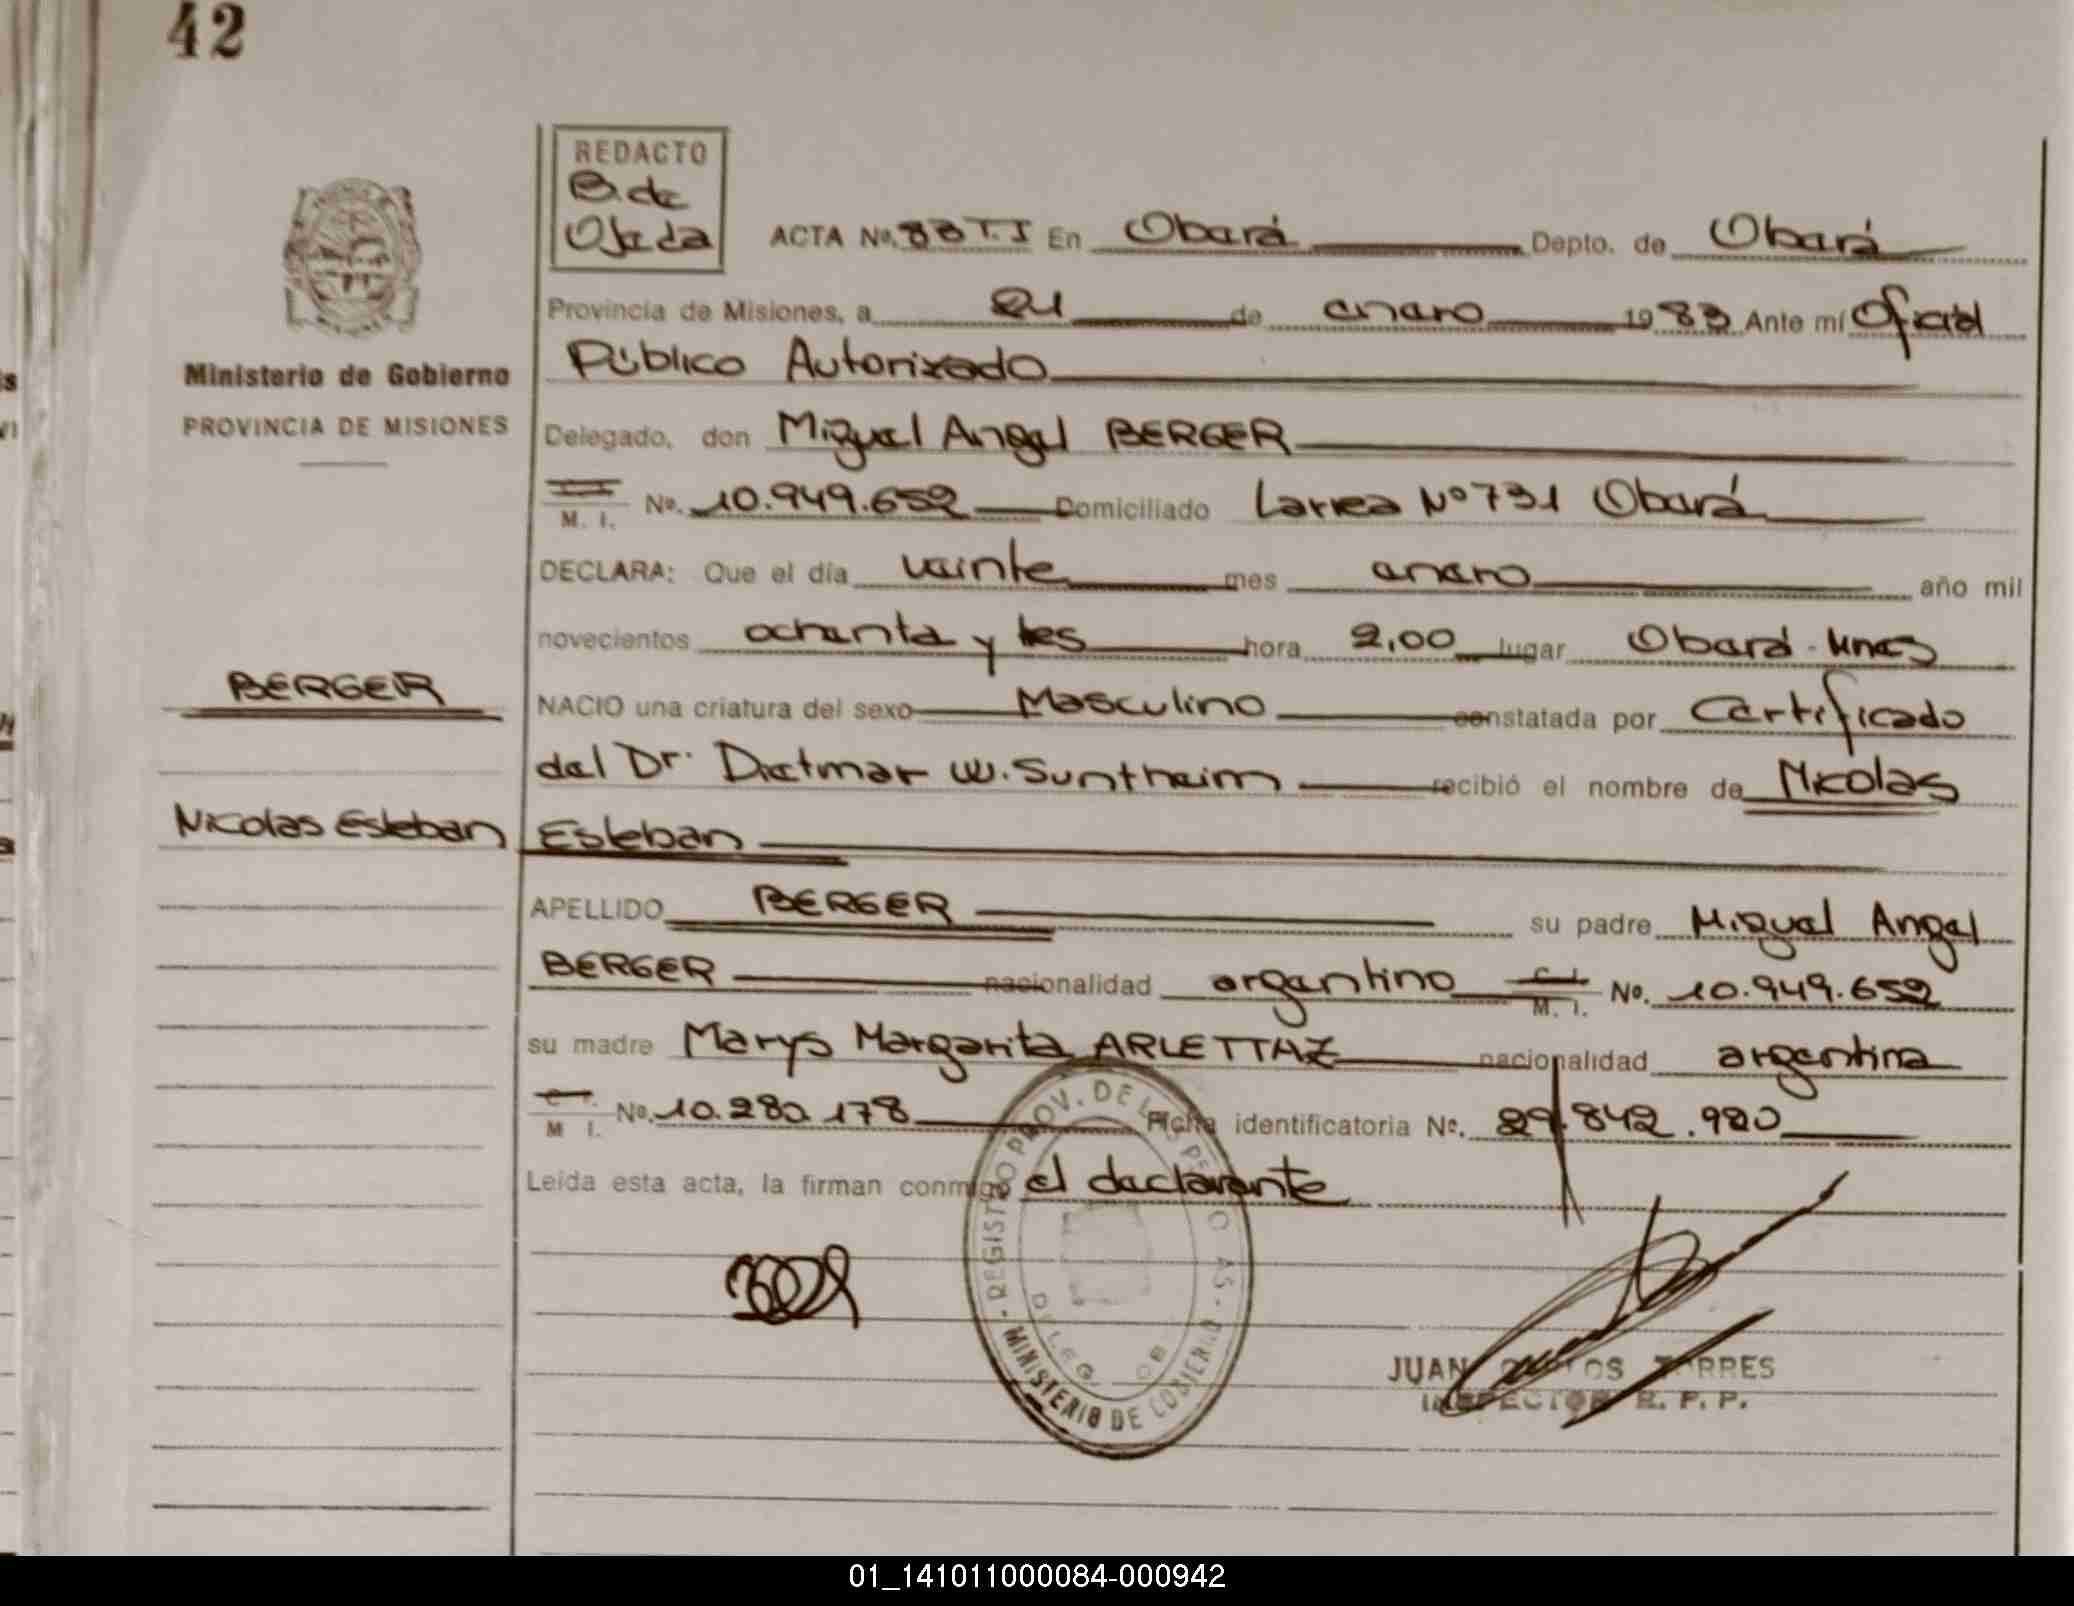 42
REDACTO
B. de
Ojeda
ACTA No. 83 T.I En Oberá Depto. de Oberá
Provincia de Misiones, a 21 de enero 1983 Ante mí Oficial
Público Autorizado
Ministerio de Gobierno
PROVINCIA DE MISIONES
Delegado, don Miguel Angel BERGER
M. I. No. 10.949.652 Domiciliado Larrea Nº 731 Oberá
DECLARA: Que el día veinte mes enero año mil
novecientos ochenta y tres hora 2,00 lugar Oberá - Mnes
BERGER
NACIO una criatura del sexo Masculino constatada por Certificado
del Dr. Dietmar W. Suntheim recibió el nombre de Nicolas
Nicolas Esteban
Esteban
APELLIDO BERGER su padre Miguel Angel
BERGER nacionalidad argentino C. I. M. I. No. 10.949.652
su madre Marys Margarita ARLETTAZ nacionalidad argentina
C. I. M I. No. 10.280.178 Ficha identificatoria No. 29.842.920
Leída esta acta, la firman conmigo el declarante
REGISTRO PROV. DE LAS PERSONAS
MINISTERIO DE GOBIERNO
JUAN TORRES
INSPECTOR R. P. P.
01_141011000084-000942